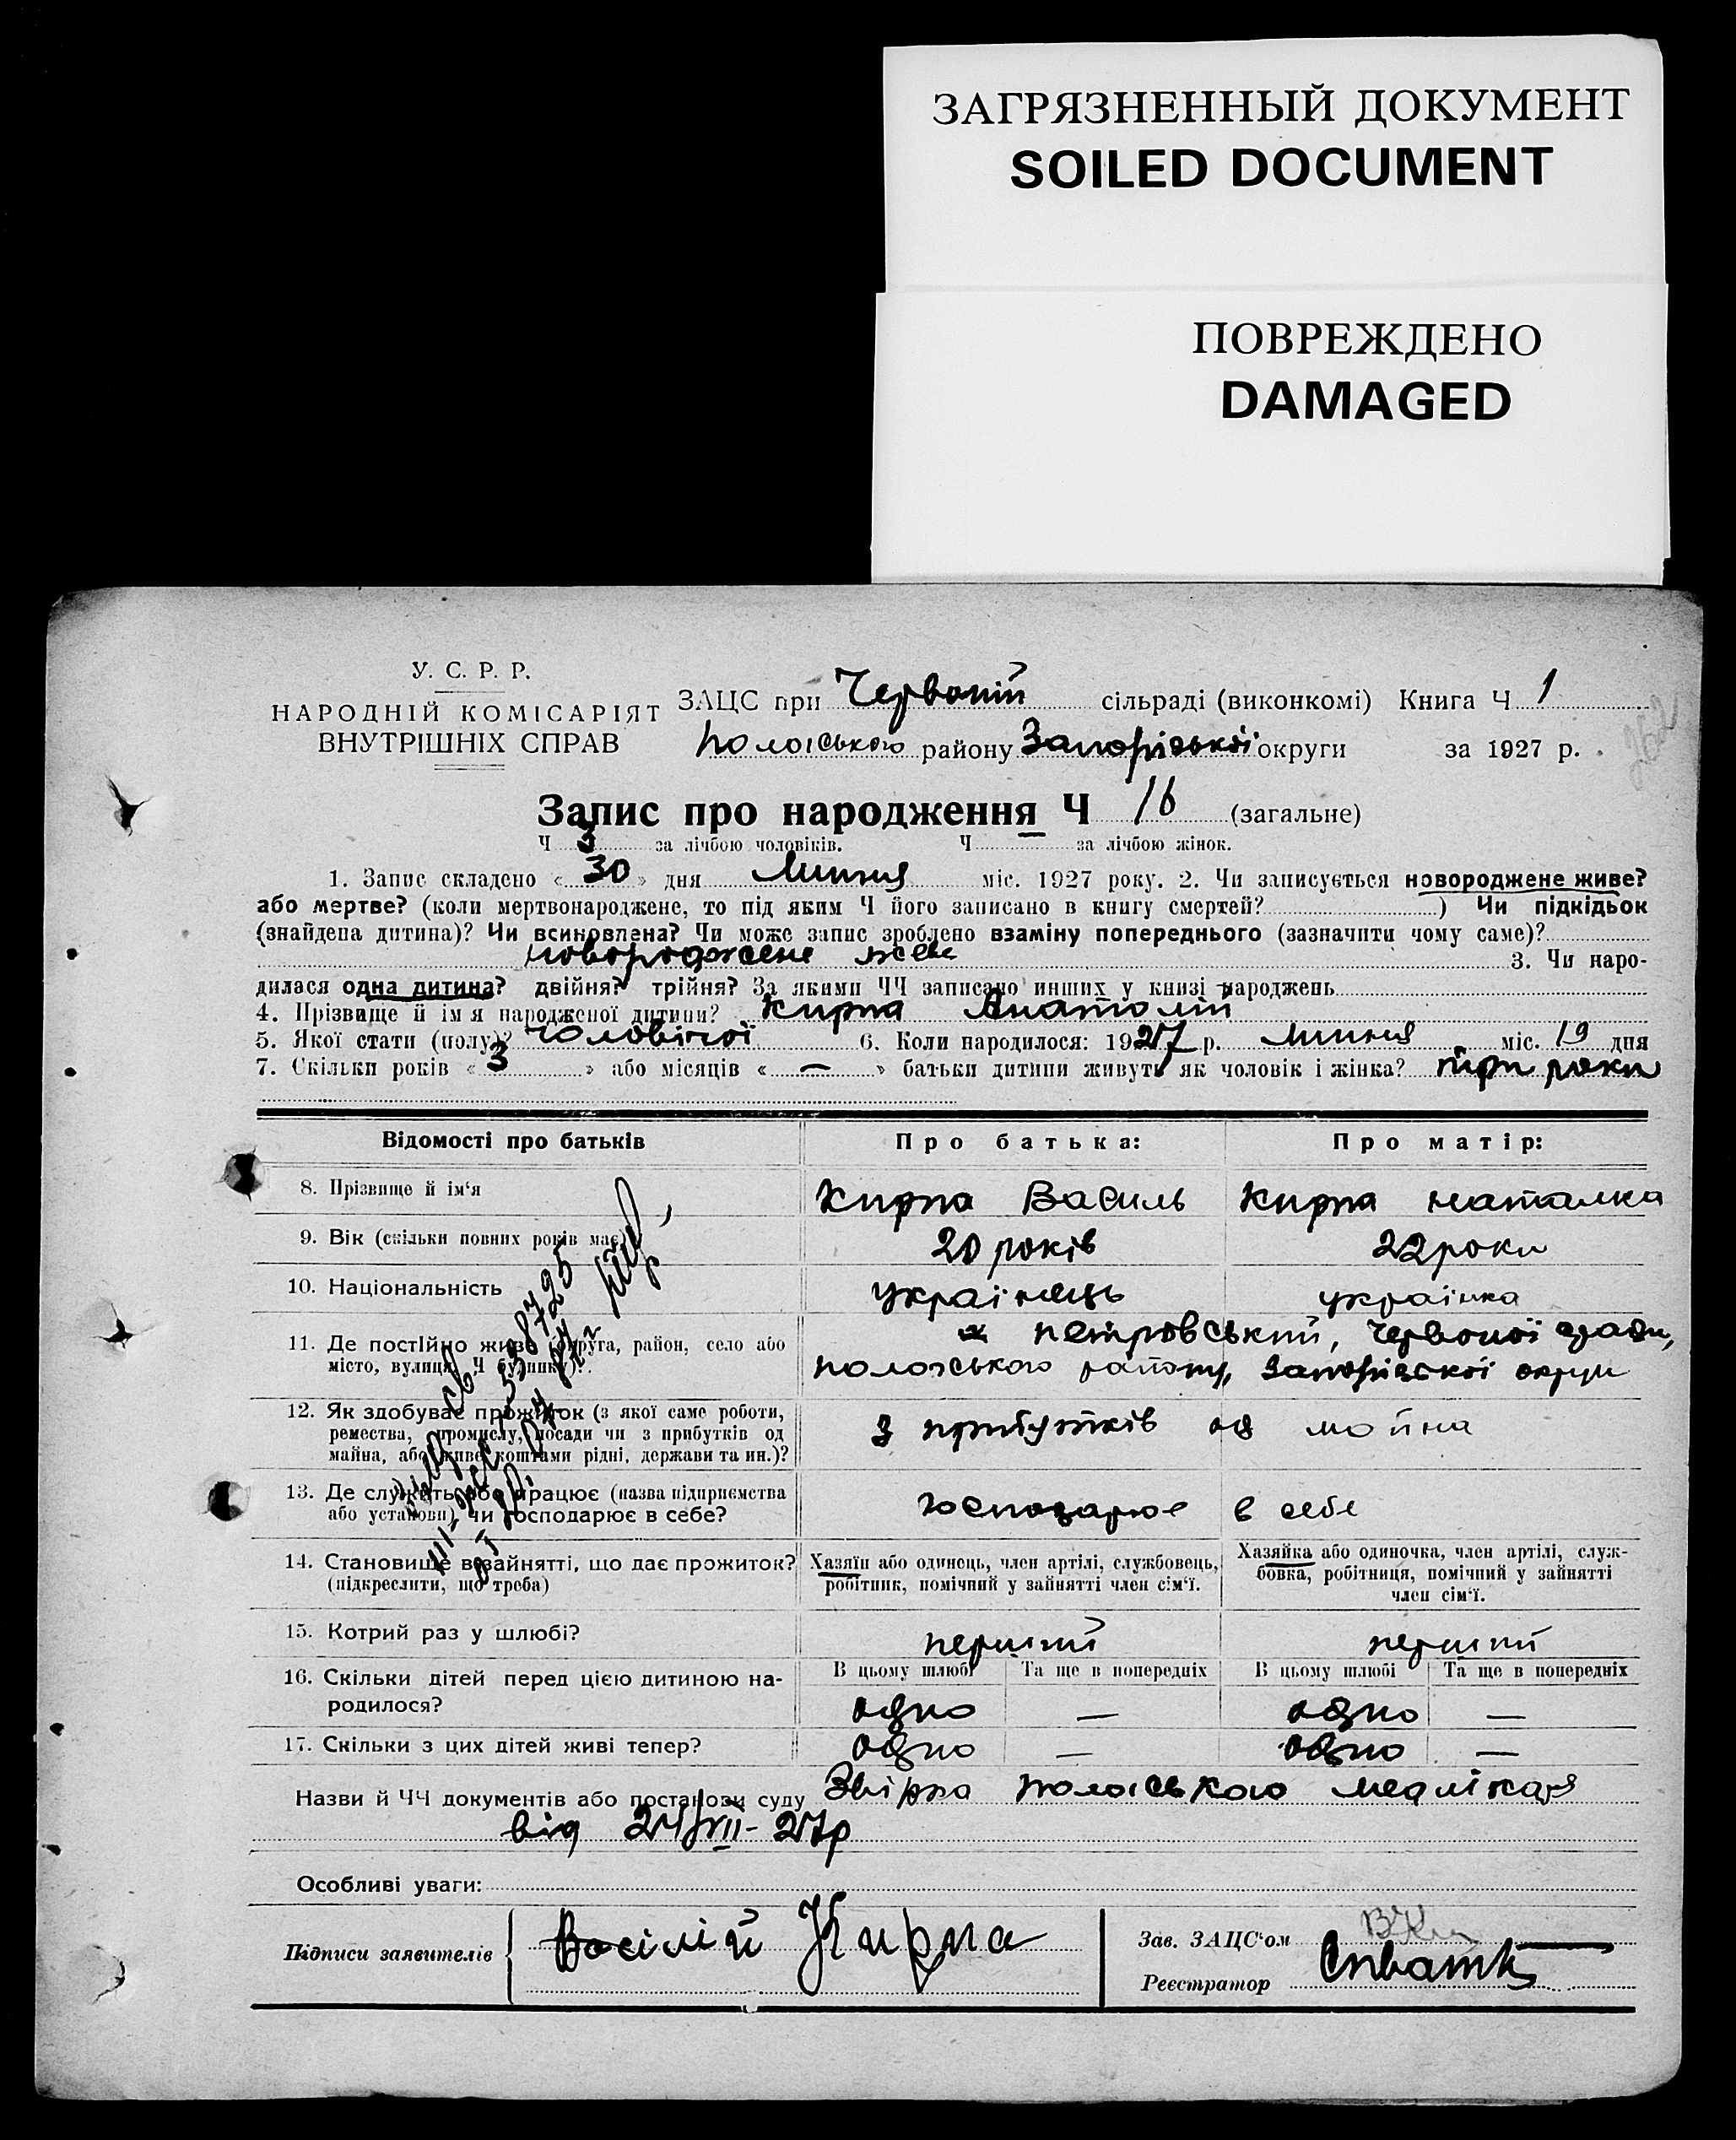 ЗАГРЯЗНЕННЫЙ ДОКУМЕНТ
SOILED DOCUMENT
ПОВРЕЖДЕНО
DAMAGED
У. С. Р. Р.
НАРОДНІЙ КОМІСАРІЯТ
ВНУТРІШНІХ СПРАВ
ЗАЦС при Червоній сільраді (виконкомі) Книга Ч 1
Пологського району Запорізької округи за 1927 р.
Запис про народження Ч 16 (загальне)
Ч 3 за лічбою чоловіків. Ч за лічбою жінок.
1. Запис складено « 30 » дня Липня міс. 1927 року. 2. Чи записується новороджене живе?
або мертве? (коли мертвонароджене, то під яким Ч його записано в книгу смертей? ) Чи підкідьок
(знайдена дитина)? Чи всиновлена? Чи може запис зроблено взаміну попереднього (зазначити чому саме)?
новороджене живе 3. Чи наро-
дилася одна дитина? двійня? трійня? За якими ЧЧ записано інших у книзі народжень
4. Прізвище й ім'я народженої дитини? Кирпа Анатолій
5. Якої стати (полу)? Чоловічої 6. Коли народилося: 1927 р. Липня міс. 19 дня
7. Скільки років « 3 » або місяців « — » батьки дитини живуть як чоловік і жінка? три роки
Відомості про батьків Про батька: Про матір:
8. Прізвище й ім'я Кирпа Василь Кирпа Наталка
9. Вік (скільки повних років має) 20 років 22 роки
10. Національність українець українка
11. Де постійно живе (округа, район, село або
місто, вулиця, Ч будинку)?
х петровський, Червоної ради,
пологського району, Запорізької округи
12. Як здобуває прожиток (з якої саме роботи,
ремества, промислу, посади чи з прибутків од
майна, або живе коштами рідні, держави та ин.)?
З прибутків од майна
13. Де служить або працює (назва підприємства
або установи), чи господарює в себе?
господарює в себе
14. Становище в зайнятті, що дає прожиток?
(підкреслити, що треба)
Хазяїн або одинець, член артілі, службовець,
робітник, помічний у зайнятті член сім'ї.
Хазяйка або одиночка, член артілі, служ-
бовка, робітниця, помічний у зайнятті
член сім'ї.
15. Котрий раз у шлюбі? перший перший
16. Скільки дітей перед цією дитиною на-
родилося?
В цьому шлюбі Та ще в попередніх В цьому шлюбі Та ще в попередніх
одно — одно —
17. Скільки з цих дітей живі тепер? одно — одно —
Назви й ЧЧ документів або постанови суду Звірка пологського медлікаря
від 24/VII-27р
Особливі уваги:
Підписи заявителів Васілій Кирпа
Зав. ЗАЦС'ом
Реєстратор